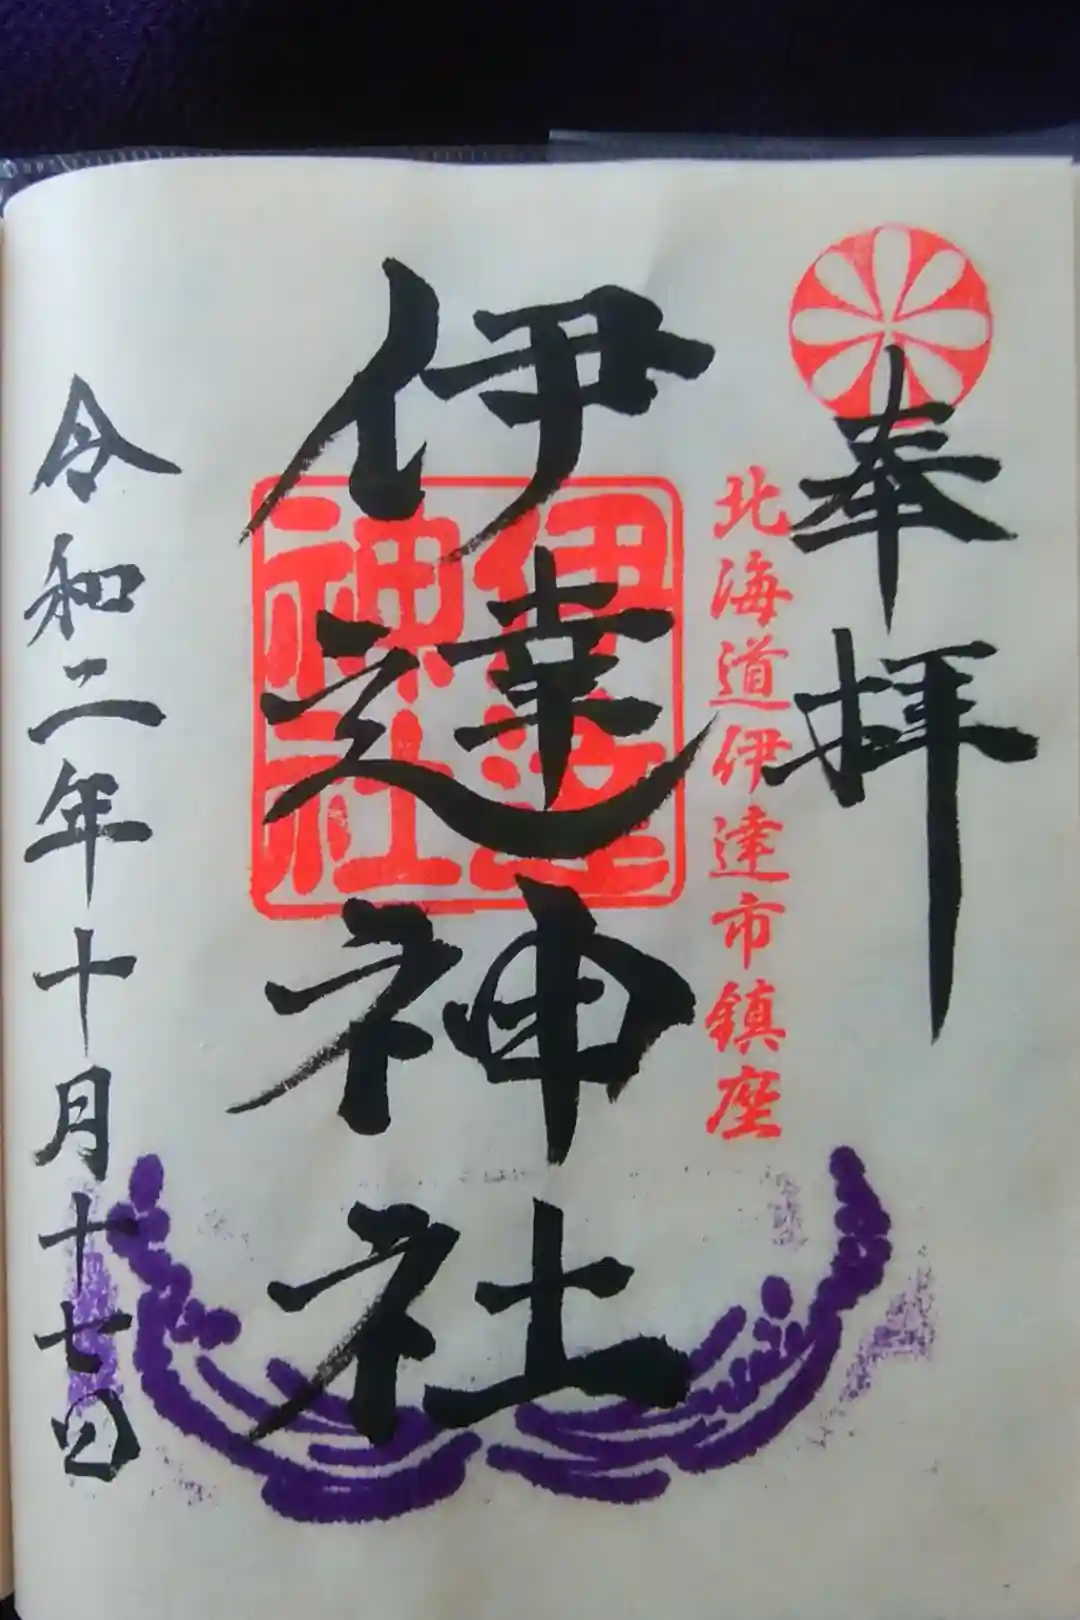 奉拝
北海道伊達市鎮座
伊達神社
伊達
神社
令和二年十月十七日